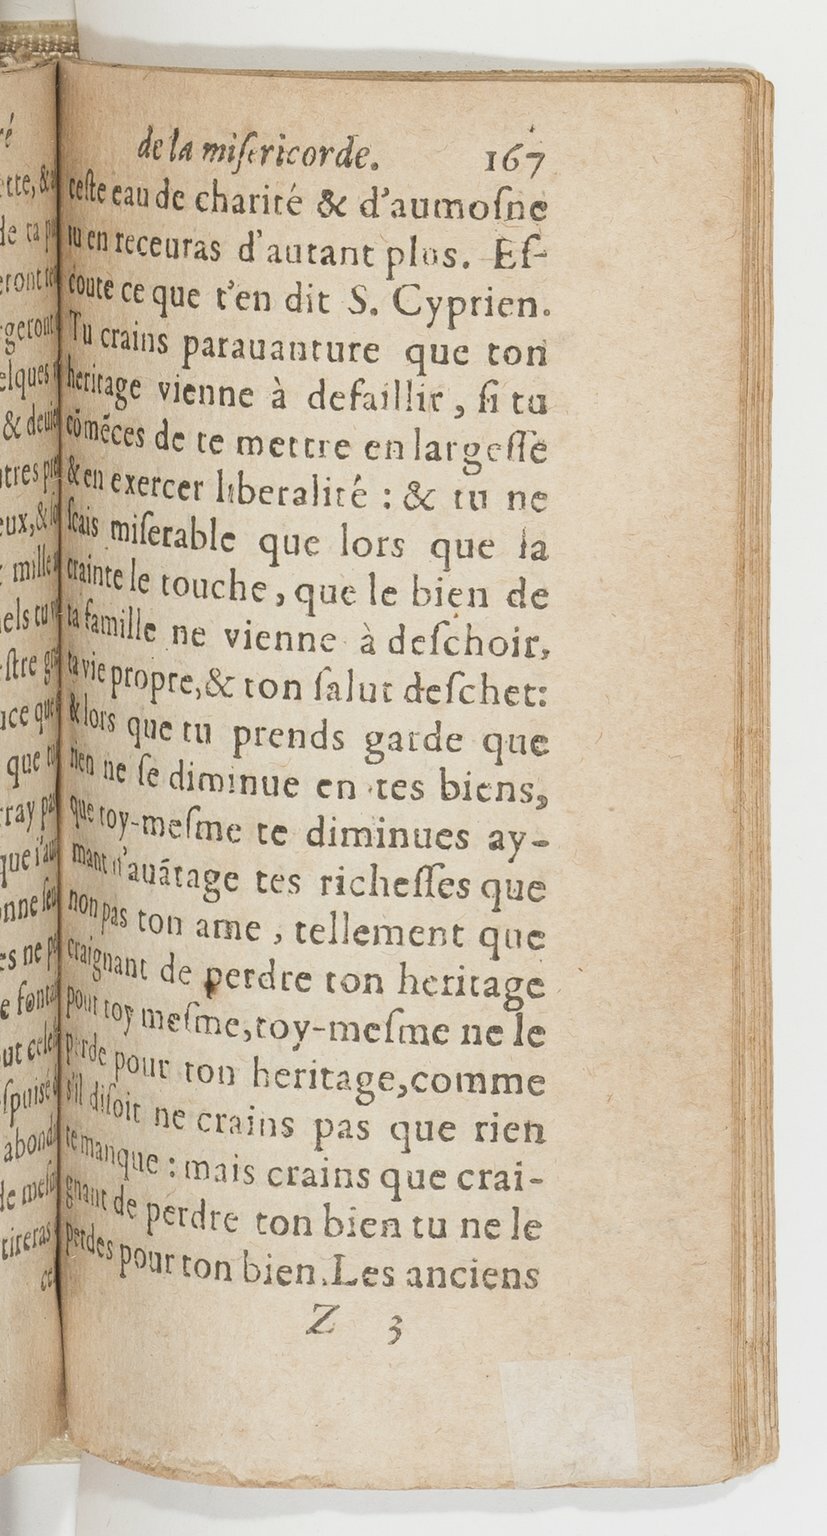 de la miſericorde. 167
ceſte eau de charité & d'aumoſne
tu en receuras d'autant plus. Eſ-
coute ce que t'en dit S. Cyprien.
Tu crains parauanture que ton
heritage vienne à defaillir, ſi tu
cõmẽces de te mettre en largeſſe
& en exercer liberalité : & tu ne
ſcais miſerable que lors que la
crainte le touche, que le bien de
ta famille ne vienne à deſchoir,
ta vie propre, & ton ſalut deſchet:
& lors que tu prends garde que
rien ne ſe diminue en tes biens,
que toy-meſme te diminues ay-
mant d'auãtage tes richeſſes que
non pas ton ame, tellement que
craignant de perdre ton heritage
pour toy meſme, toy-meſme ne le
perde pour ton heritage, comme
s'il diſoit ne crains pas que rien
te manque : mais crains que crai-
gnant de perdre ton bien tu ne le
perdes pour ton bien. Les anciens
Z 3